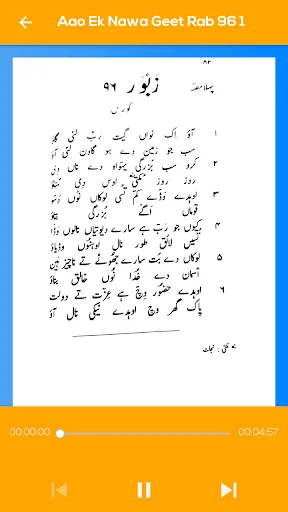 Aao Ek Nawa Geet Rab 96 1
۸۲
پہلا حصّہ زبُور ۹۶
کورس
۱ آؤ اِک نواں گیت ربّ لئی گاؤ
سب جو زمین دے ہو گاون لئی آؤ
۲ کرو سب بُزرگی یہوواہ دے ناں دی
روز روز مُکتی اوس دی سُناؤ
۳ اوہدے وَڈّے کم تُسی لوکاں نُوں دَسّو
قوماں اَگّے بُزرگی
۴ کیوں جو ربّ ہے سارے دیوتیاں نالوں وَڈّا
تُسیں لائق طور نال اوہنُوں وڈیاؤ
۵ لوکاں دے بُت سارے جھُوٹے تے ناچیز ہین
اَسمان دے خُدا نُوں خالق بناؤ
۶ اوہدے حضُور وِچ ہے عِزّت تے دولت
پاک گھر وچ اوہدے نیکی نال آؤ
مُکتی : نجات
00:00:00 00:04:57